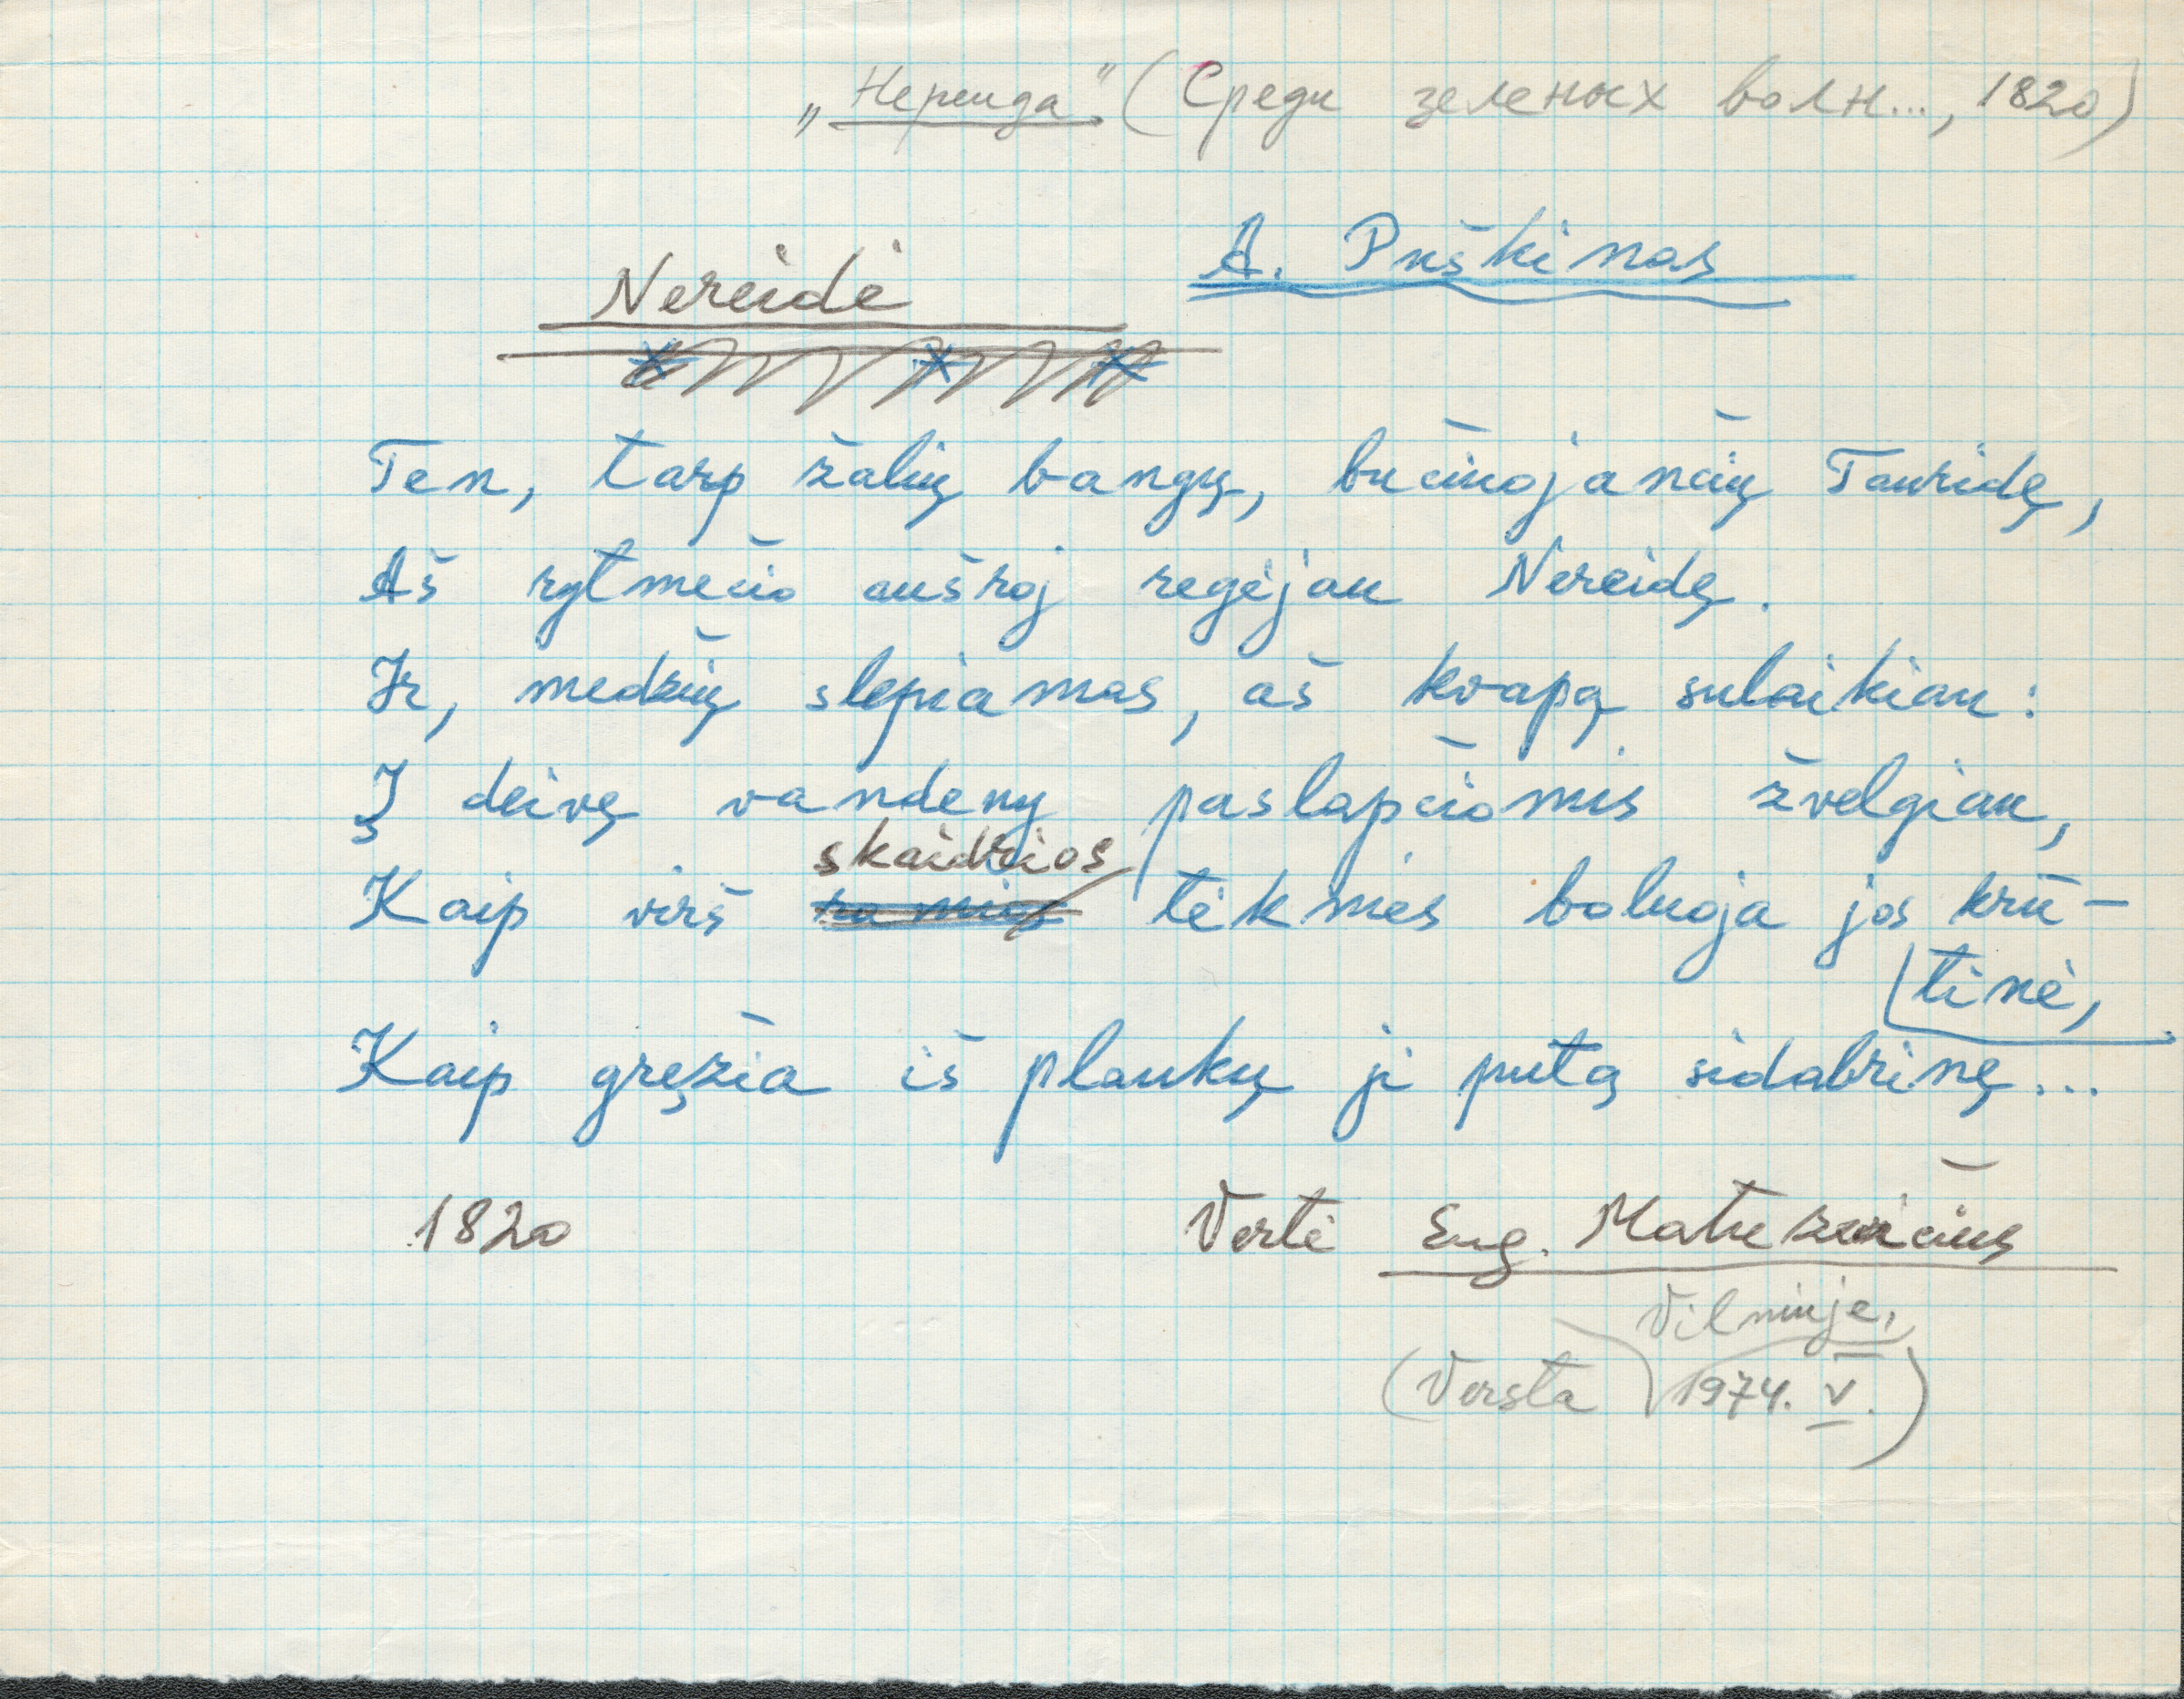 „Нереида" (Среди зеленых волн..., 1820)
A. Puškinas
Nereidė
Ten, tarp žalių bangų, bučiuojančių Tauridę,
Aš rytmečio aušroj regėjau Nereidę.
Ir, medžių slepiamas, aš kvapą sulaikiau:
Į deivę vandenų paslapčiomis žvelgiau,
skaidrios
Kaip virš ramios tėkmės boluoja jos krū-
tinė,
Kaip gręžia iš plaukų ji putą sidabrinę...
1820
Vertė Eug. Matuzevičius
Vilniuje,
(Versta 1974. V.)